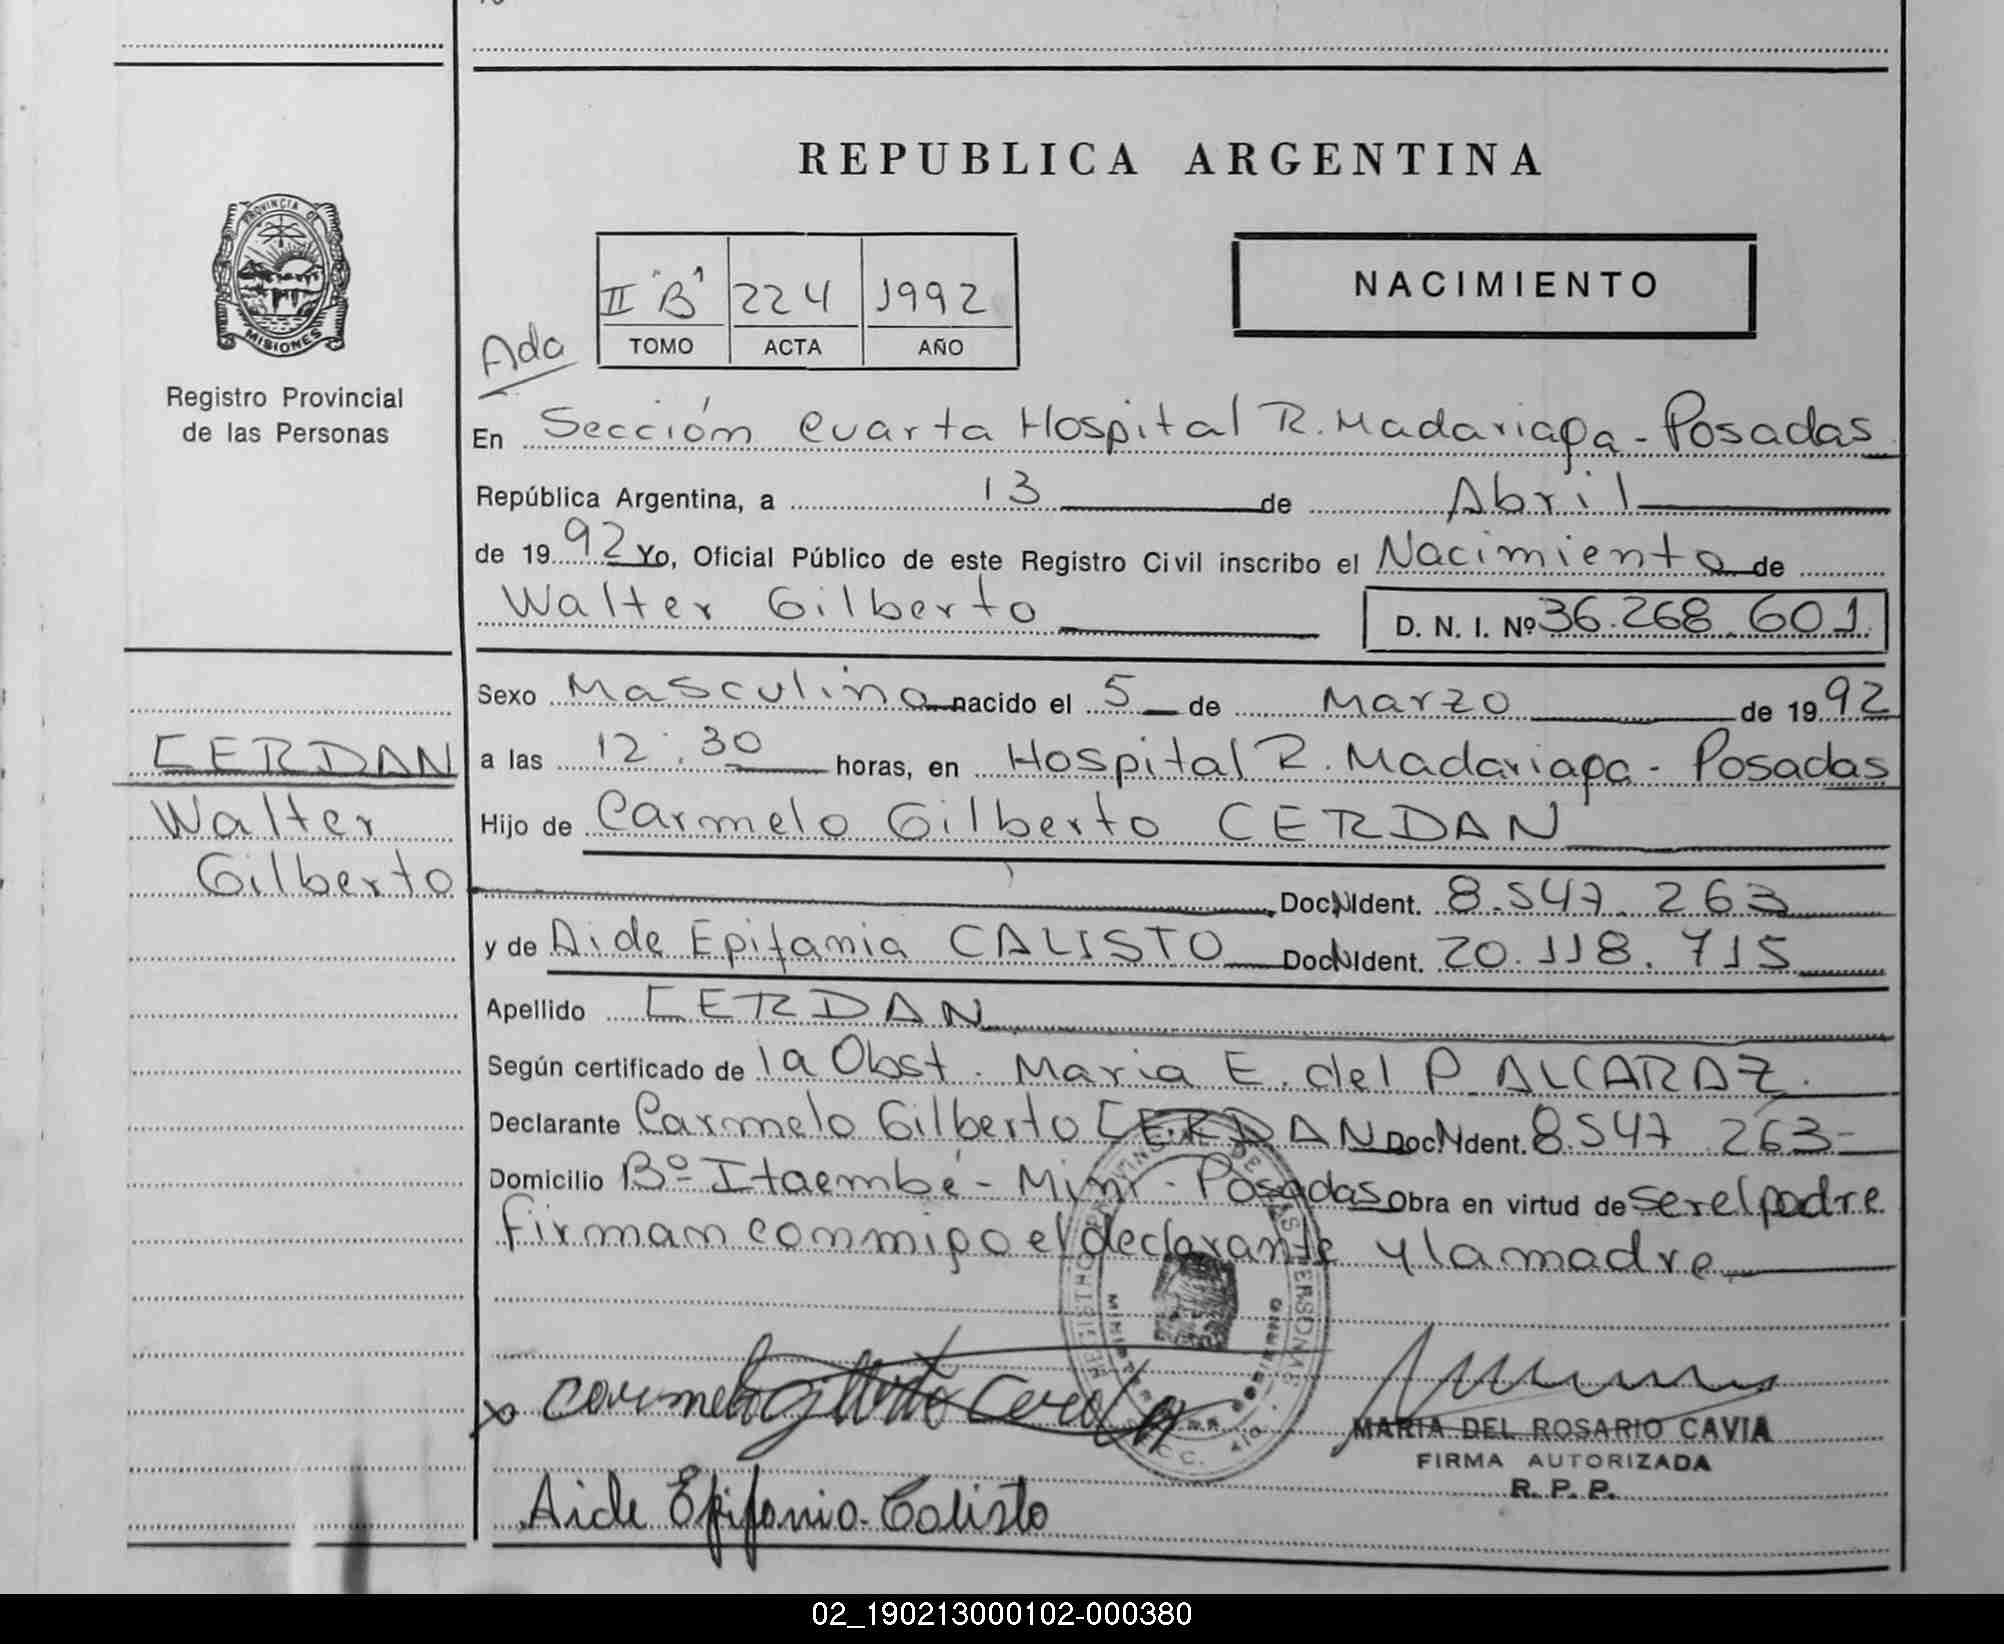 REPUBLICA ARGENTINA
PROVINCIA DE
MISIONES
Registro Provincial
de las Personas
II "B" 224 1992
TOMO ACTA AÑO
NACIMIENTO
Ada
En Sección Cuarta Hospital R. Madariaga - Posadas
República Argentina, a 13 de Abril
de 1992 Yo, Oficial Público de este Registro Civil inscribo el Nacimiento de
Walter Gilberto D. N. I. Nº 36.268.601
Sexo Masculino nacido el 5 de Marzo de 1992
CERDAN
Walter
Gilberto
a las 12:30 horas, en Hospital R. Madariaga - Posadas
Hijo de Carmelo Gilberto CERDAN
Doc N Ident. 8.547.263
y de Aide Epifania CALISTO Doc N Ident. 20.118.715
Apellido CERDAN
Según certificado de la Obst. Maria E. del P ALCARAZ.
Declarante Carmelo Gilberto CERDAN Doc N Ident. 8.547.263-
Domicilio Bº Itaembé - Mini - Posadas Obra en virtud de ser el padre
firman conmigo el declarante y la madre
x Carmelo Gilberto Cerdan
MARIA DEL ROSARIO CAVIA
FIRMA AUTORIZADA
R. P. P.
Aide Epifania Calisto
02_190213000102-000380